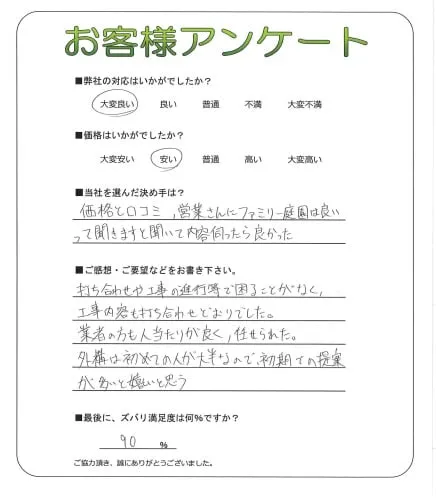 お客様アンケート
■弊社の対応はいかがでしたか?
大変良い 良い 普通 不満 大変不満
■価格はいかがでしたか?
大変安い 安い 普通 高い 大変高い
■当社を選んだ決め手は?
価格と口コミ、営業さんにファミリー庭園は良い
って聞きますと聞いて内容伺ったら良かった
■ご感想・ご要望などをお書き下さい。
打ち合わせや工事の進行等で困ることがなく、
工事内容も打ち合わせどおりでした。
業者の方も人当たりが良く、任せられた。
外構は初めての人が大半なので、初期での提案
が多いと嬉しいと思う
■最後に、ズバリ満足度は何%ですか?
90 %
ご協力頂き、誠にありがとうございました。